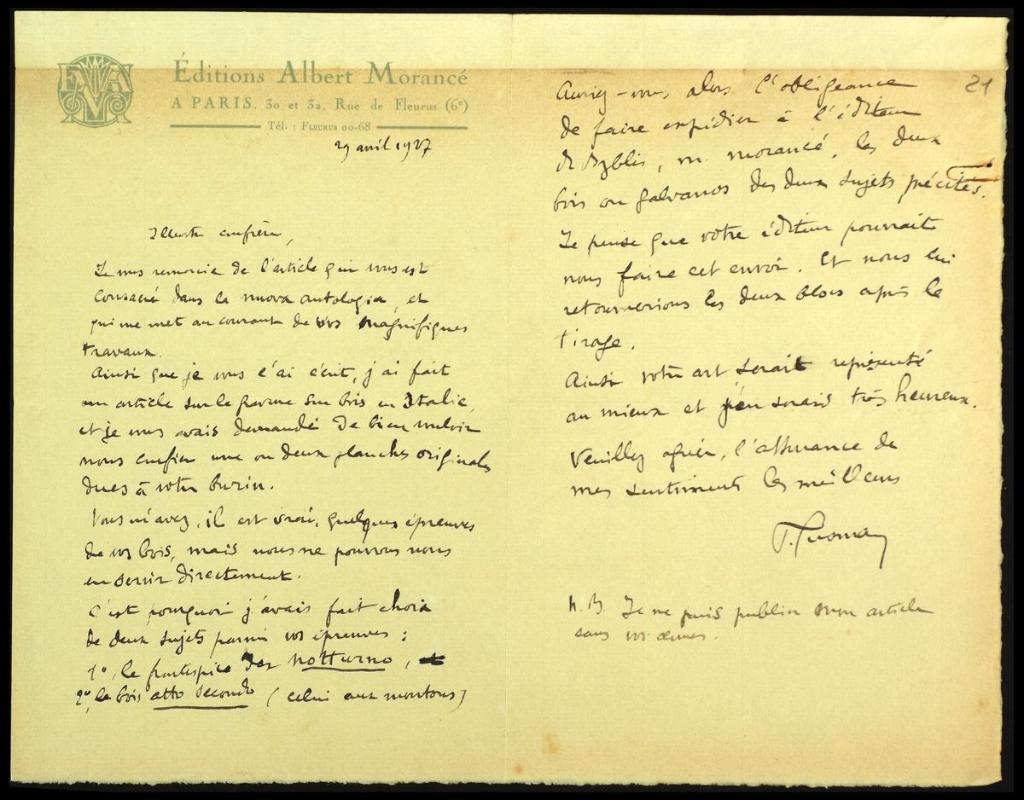 Éditions Albert Morancé
A PARIS, 30 et 32, Rue de Fleurus (6e)
Tél. : FLEURUS 00-68
29 avril 1927
Illustre confrère,
Je vous remercie de l'article qui vous est
consacré dans la nuova antologia, et
qui me met au courant de vos magnifiques
travaux.
Ainsi que je vous l'ai écrit, j'ai fait
un article sur la gravure sur bois en Italie,
et je vous avais demandé de bien vouloir
nous confier une ou deux planches originales
dues à votre burin.
Vous m'avez, il est vrai, quelques épreuves
de vos bois, mais nous ne pouvons nous
en servir directement.
C'est pourquoi j'avais fait choix
de deux sujets parmi vos épreuves :
1º, le frontispice del notturno,
2º, le bois atto secondo (celui aux moutons)
21
Auriez-vous alors l'obligeance
de faire expédier à l'éditeur
de Byblis, m. morancé, les deux
bois ou galvanos des deux sujets précités.
Je pense que votre éditeur pourrait
nous faire cet envoi. Et nous lui
retournerions les deux blocs après le
tirage.
Ainsi votre art serait représenté
au mieux et j'en serais très heureux.
Veuillez agréer, l'assurance de
mes sentiments les meilleurs
N.B. Je ne puis publier mon article
sans vos œuvres.